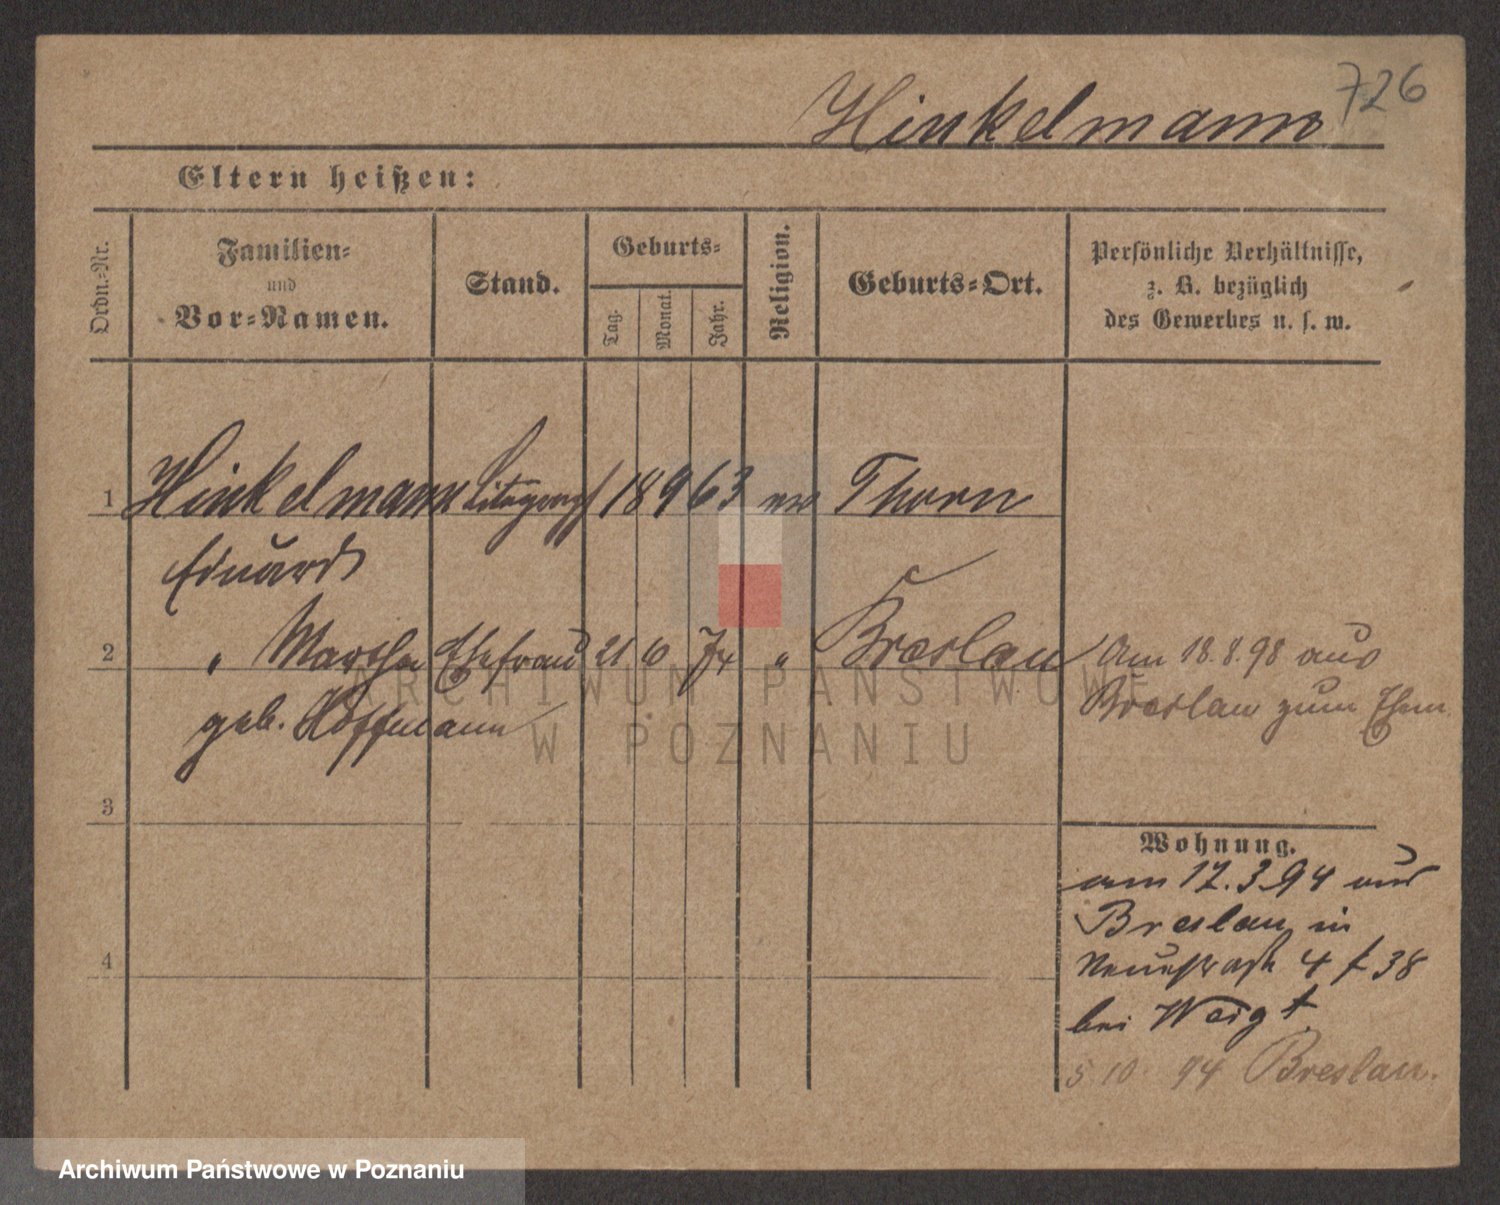 726
Hinkelmann
Eltern heißen:
Ordn.-Nr.
Familien-
und
Vor-Namen.
Stand.
Geburts-
Tag.
Monat.
Jahr.
Religion.
Geburts-Ort.
Persönliche Verhältnisse,
z. B. bezüglich
des Gewerbes u. s. w.
1 Hinkelmann 18 9 63 Thorn
Eduard
2 " Martha Ehefrau 21 6 74 " Breslau Am 18.8.98 aus
geb. Hoffmann
Breslau zum Ehem
3
4
Wohnung.
am 12.3.94 aus
Breslau in
4 f 38
bei Weigt
5 10 94 Breslau.
ARCHIWUM PAŃSTWOWE
W POZNANIU
Archiwum Państwowe w Poznaniu